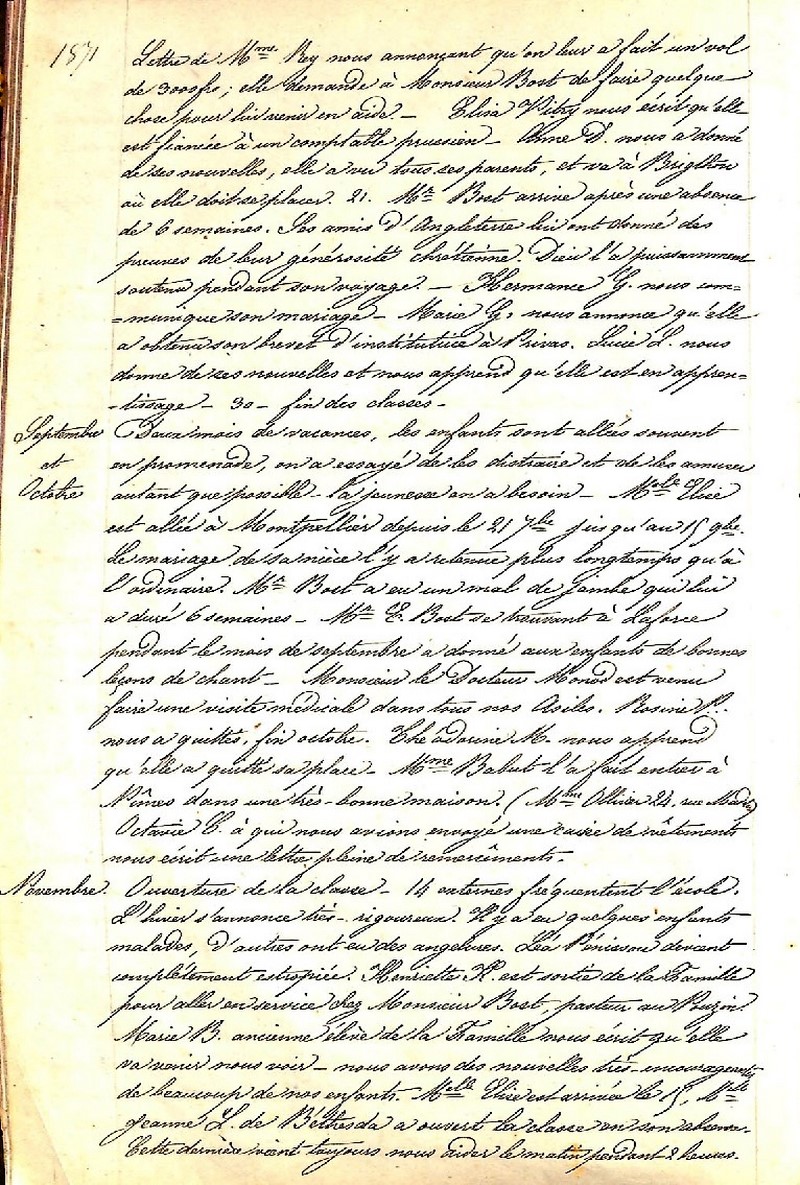 1871
Lettre de Mme Rey nous annonçant qu'on leur a fait un vol
de 3000 frs; elle demande à Monsieur Bost de faire quelque
chose pour lui venir en aide. — Elisa Vitry nous écrit qu'elle
est fiancée à un comptable prussien — Anne D. nous a donné
de ses nouvelles, elle a vu tous ses parents, et va à Brigthon
où elle doit se placer. 21. Mr Bost arrive après une absence
de 6 semaines. Ses amis d'Angleterre lui ont donné des
preuves de leur générosité chrétienne. Dieu l'a puissamment
soutenu pendant son voyage. — Hermance G. nous com=
=munique son mariage — Marie G. nous annonce qu'elle
a obtenu son brevet d'institutrice à Privas. Lucie L. nous
donne de ses nouvelles et nous apprend qu'elle est en appren=
-tissage — 30 — fin des classes —
Septembre
et
Octobre
Deux mois de vacances, les enfants sont allées souvent
en promenade, on a essayé de les distraire et de les amuser
autant que possible — la jeunesse en a besoin — Melle Elise
est allée à Montpellier depuis le 21 7bre jusqu'au 15 9bre.
Le mariage de sa nièce l'y a retenue plus longtemps qu'à
l'ordinaire. Mr Bost a eu un mal de jambe qui lui
a duré 6 semaines — Mr E. Bost se trouvant à Laforce
pendant le mois de septembre a donné aux enfants de bonnes
leçons de chant — Monsieur le Docteur Monod est venu
faire une visite médicale dans tous nos Asiles. Rosine P..
nous a quittés, fin octobre. Théodorine M. nous apprend
qu'elle a quitté sa place — Mme Babut l'a fait entrer à
Nîmes dans une très-bonne maison. (Mme Ollivier 24, rue
Octavie C. à qui nous avions envoyé une caisse de vêtements
nous écrit une lettre pleine de remercîments.
Novembre.
Ouverture de la classe — 14 externes fréquentent l'école.
L'hiver s'annonce très-rigoureux. Il y a eu quelques enfants
malades, d'autres ont eu des angelures. Léa Pénissou devient
complètement estropiée. Henriette K. est sortie de la Famille
pour aller en service chez Monsieur Bost, pasteur au Pouzin.
Marie B. ancienne élève de la Famille nous écrit qu'elle
va venir nous voir — nous avons des nouvelles très-encourageantes
de beaucoup de nos enfants. Melle Elise est arrivée le 15, Melle
Jeanne L. de Béthesda a ouvert la classe en son absence.
Cette dernière vient toujours nous aider le matin pendant 2 heures.